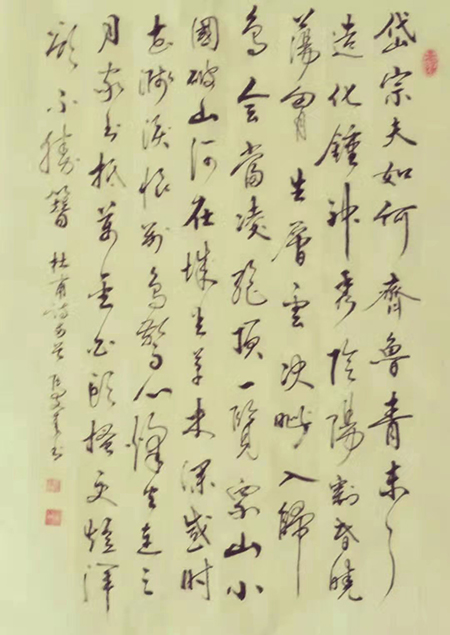 岱宗夫如何齊魯青未了
造化鍾神秀陰陽割昏曉
蕩胸生層雲決眦入歸
鳥會當凌絕頂一覽眾山小
國破山河在城春草木深感時
花濺淚恨別鳥驚心烽火連三
月家書抵萬金白頭搔更短渾
欲不勝簪 杜甫詩